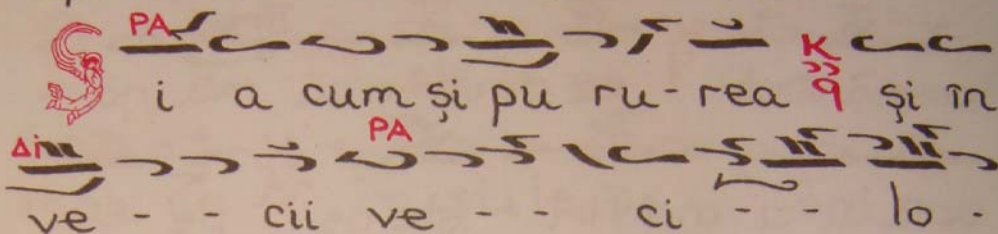 PA K
Și a cum și pu ru-rea ӄ și în
Δi PA
ve - - cii ve - - ci - - lo -